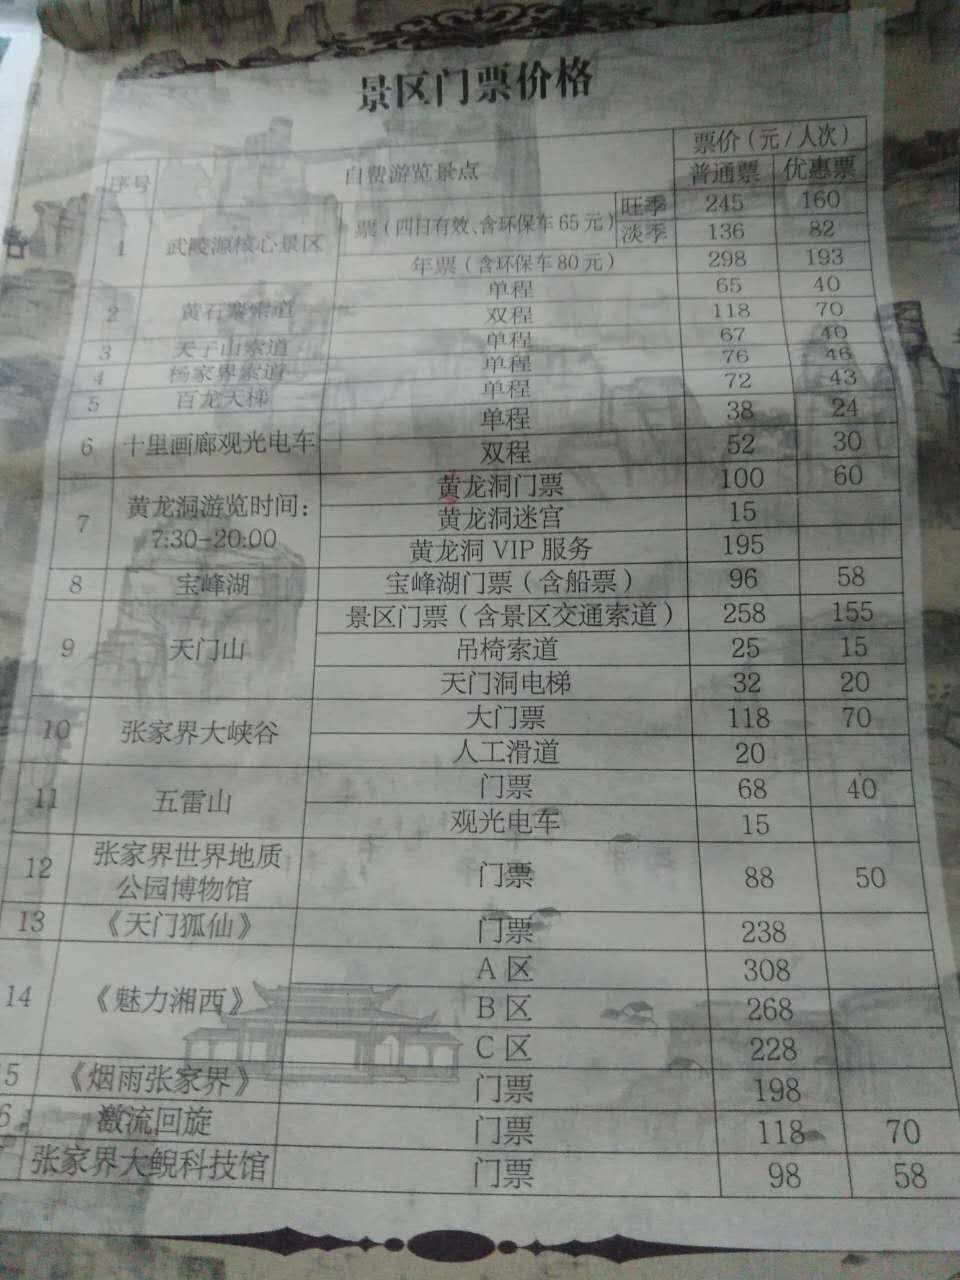 景区门票价格
序号 自费游览景点 票价(元/人次)
普通票 优惠票
1 武陵源核心景区 票(四日有效、含环保车65元) 旺季 245 160
淡季 136 82
年票(含环保车80元) 298 193
2 黄石寨索道 单程 65 40
双程 118 70
3 天子山索道 单程 67 40
4 杨家界索道 单程 76 46
5 百龙天梯 单程 72 43
6 十里画廊观光电车 单程 38 24
双程 52 30
7 黄龙洞游览时间:
7:30-20:00
黄龙洞门票 100 60
黄龙洞迷宫 15
黄龙洞 VIP 服务 195
8 宝峰湖 宝峰湖门票(含船票) 96 58
9 天门山 景区门票(含景区交通索道) 258 155
吊椅索道 25 15
天门洞电梯 32 20
10 张家界大峡谷 大门票 118 70
人工滑道 20
11 五雷山 门票 68 40
观光电车 15
12 张家界世界地质
公园博物馆 门票 88 50
13 《天门狐仙》 门票 238
14 《魅力湘西》 A 区 308
B 区 268
C 区 228
5 《烟雨张家界》 门票 198
6 激流回旋 门票 118 70
张家界大鲵科技馆 门票 98 58